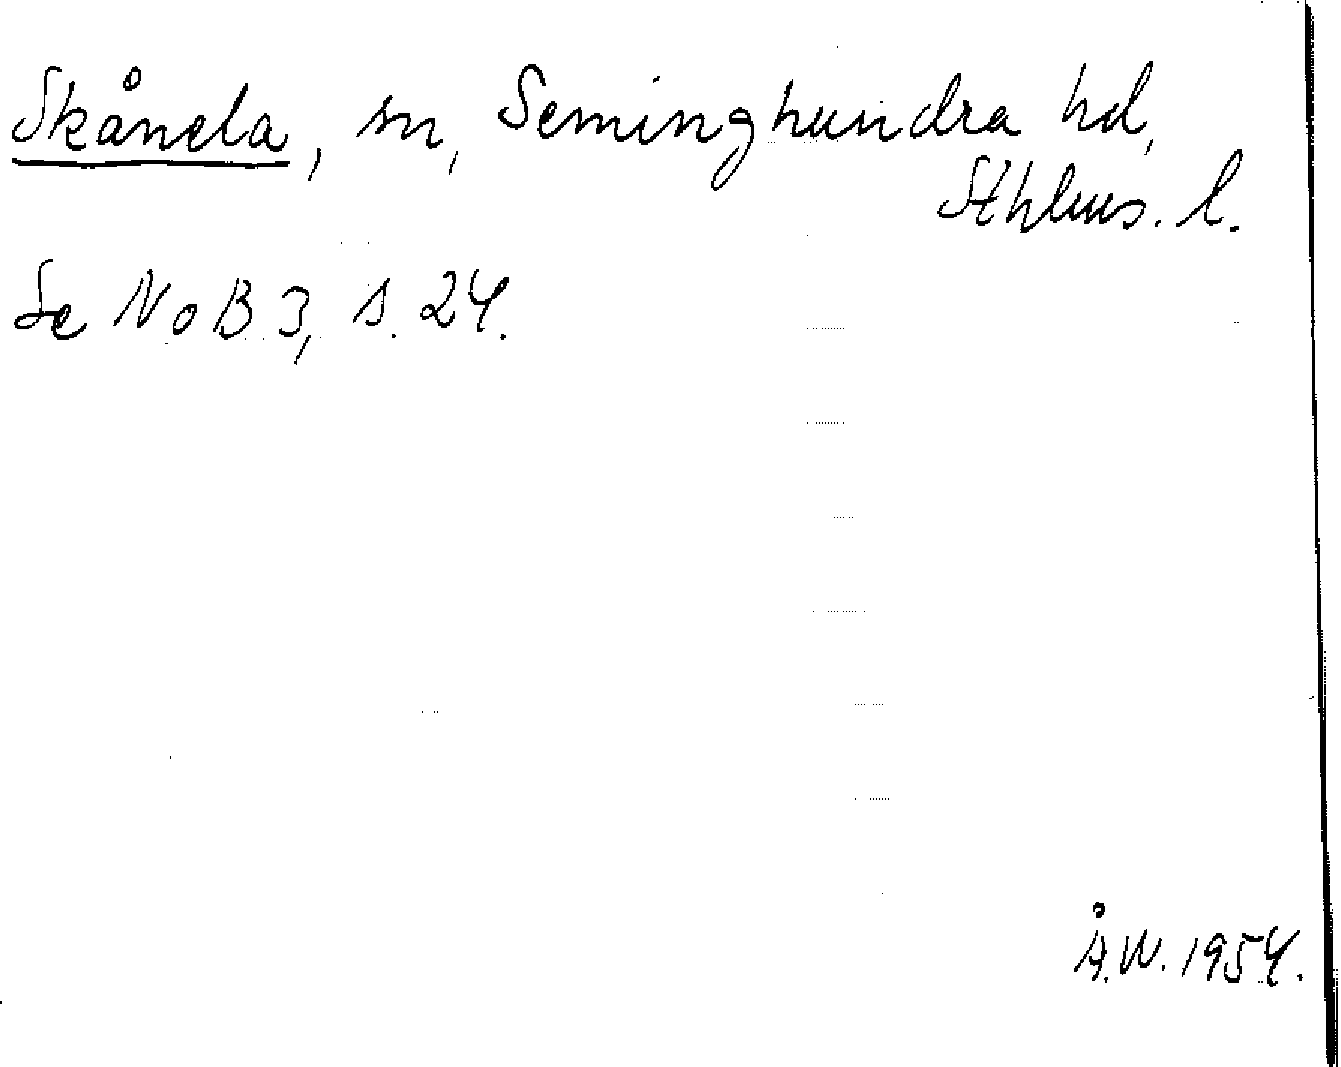 Skånela, sn, Seminghundra hd,
Sthlms. l.
Se NoB 3, s. 24.
Å.W. 1954.